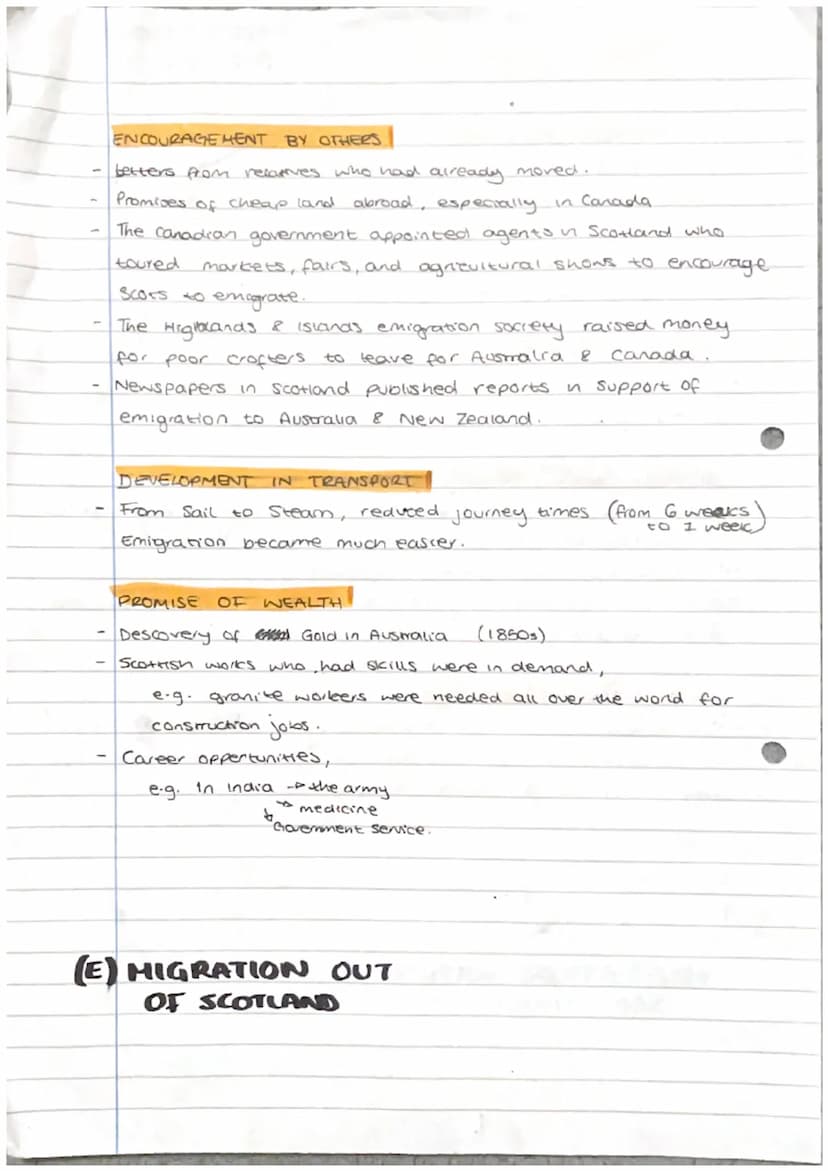 ENCOURAGEMENT BY OTHERS
- Letters from relatives who had already moved.
- Promises of cheap land abroad, especially in Canada
- The Canadian government appointed agents in Scotland who
toured markets, fairs, and agricultural shows to encourage
Scots to emigrate.
- The Highlands & Islands emigration society raised money
for poor crofters to leave for Australia & Canada.
- Newspapers in Scotland published reports in support of
emigration to Australia & New Zealand.
DEVELOPMENT IN TRANSPORT
- From Sail to Steam, reduced journey times (from 6 weeks
to 1 week)
Emigration became much easier.
PROMISE OF WEALTH
- Descovery of Gold in Australia (1850s)
- Scottish works who had skills were in demand,
e.g. granite workers were needed all over the world for
construction jobs.
- Career oppertunities,
e.g. In India → the army
→ medicine
↳ Government service.
(E) MIGRATION OUT
OF SCOTLAND